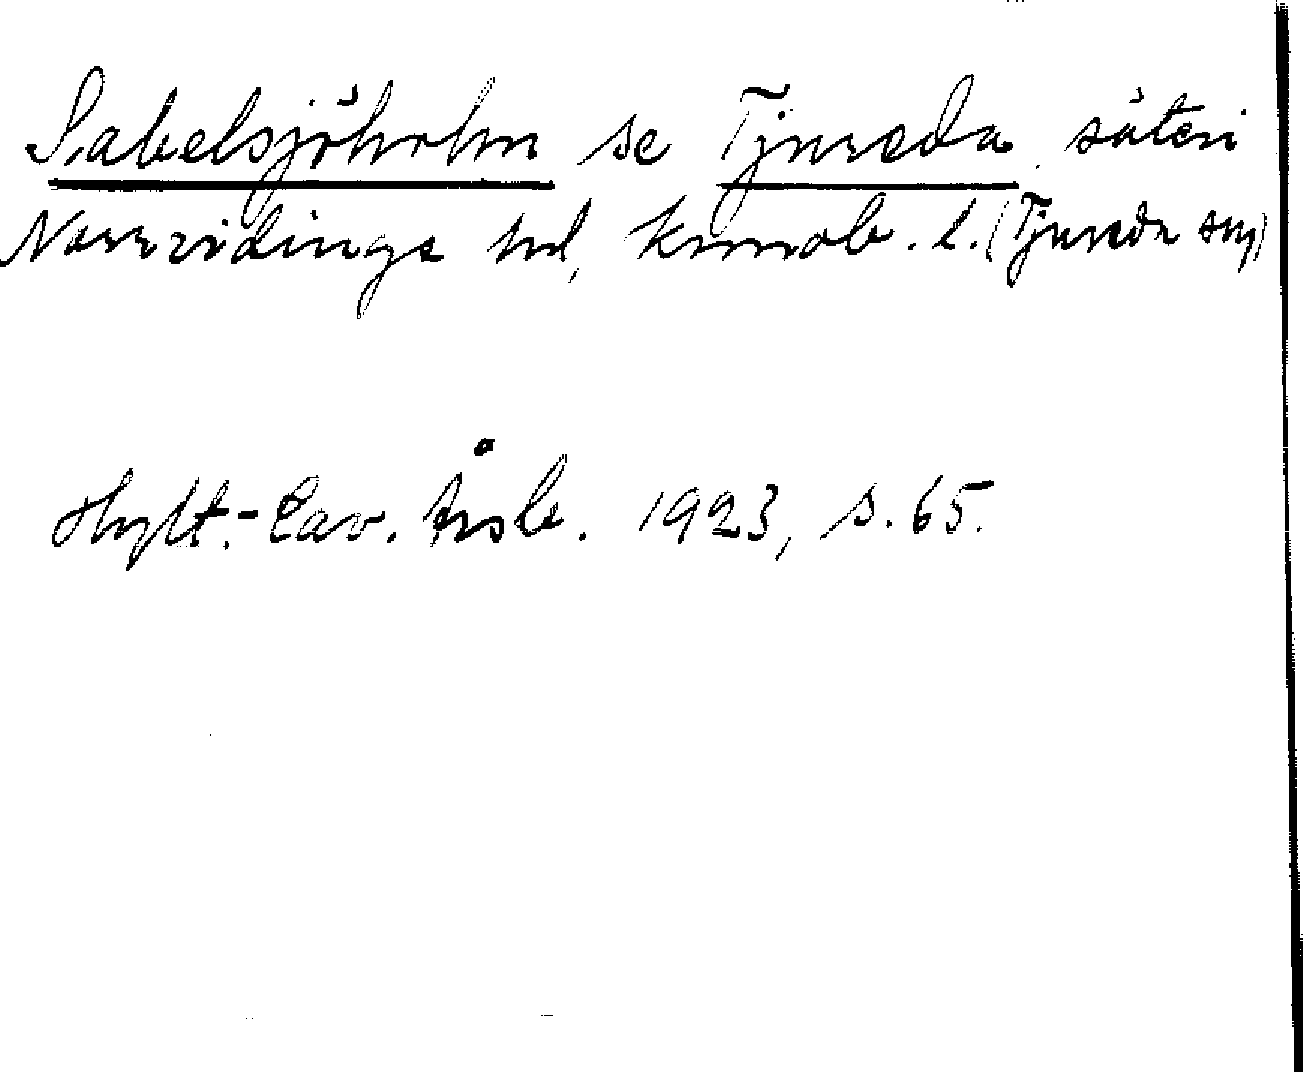 Sabelsjöholm se Tjureda säteri
Norrvidinge hd, Kronob. l. (Tjureda sn)
Hylt.-Cav. Årsb. 1923, s. 65.